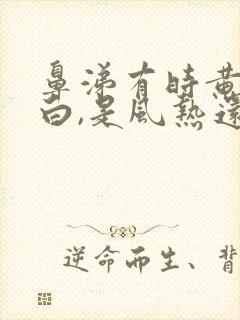 鼻涕有時黄
白,是風熱還
逆命而生、背